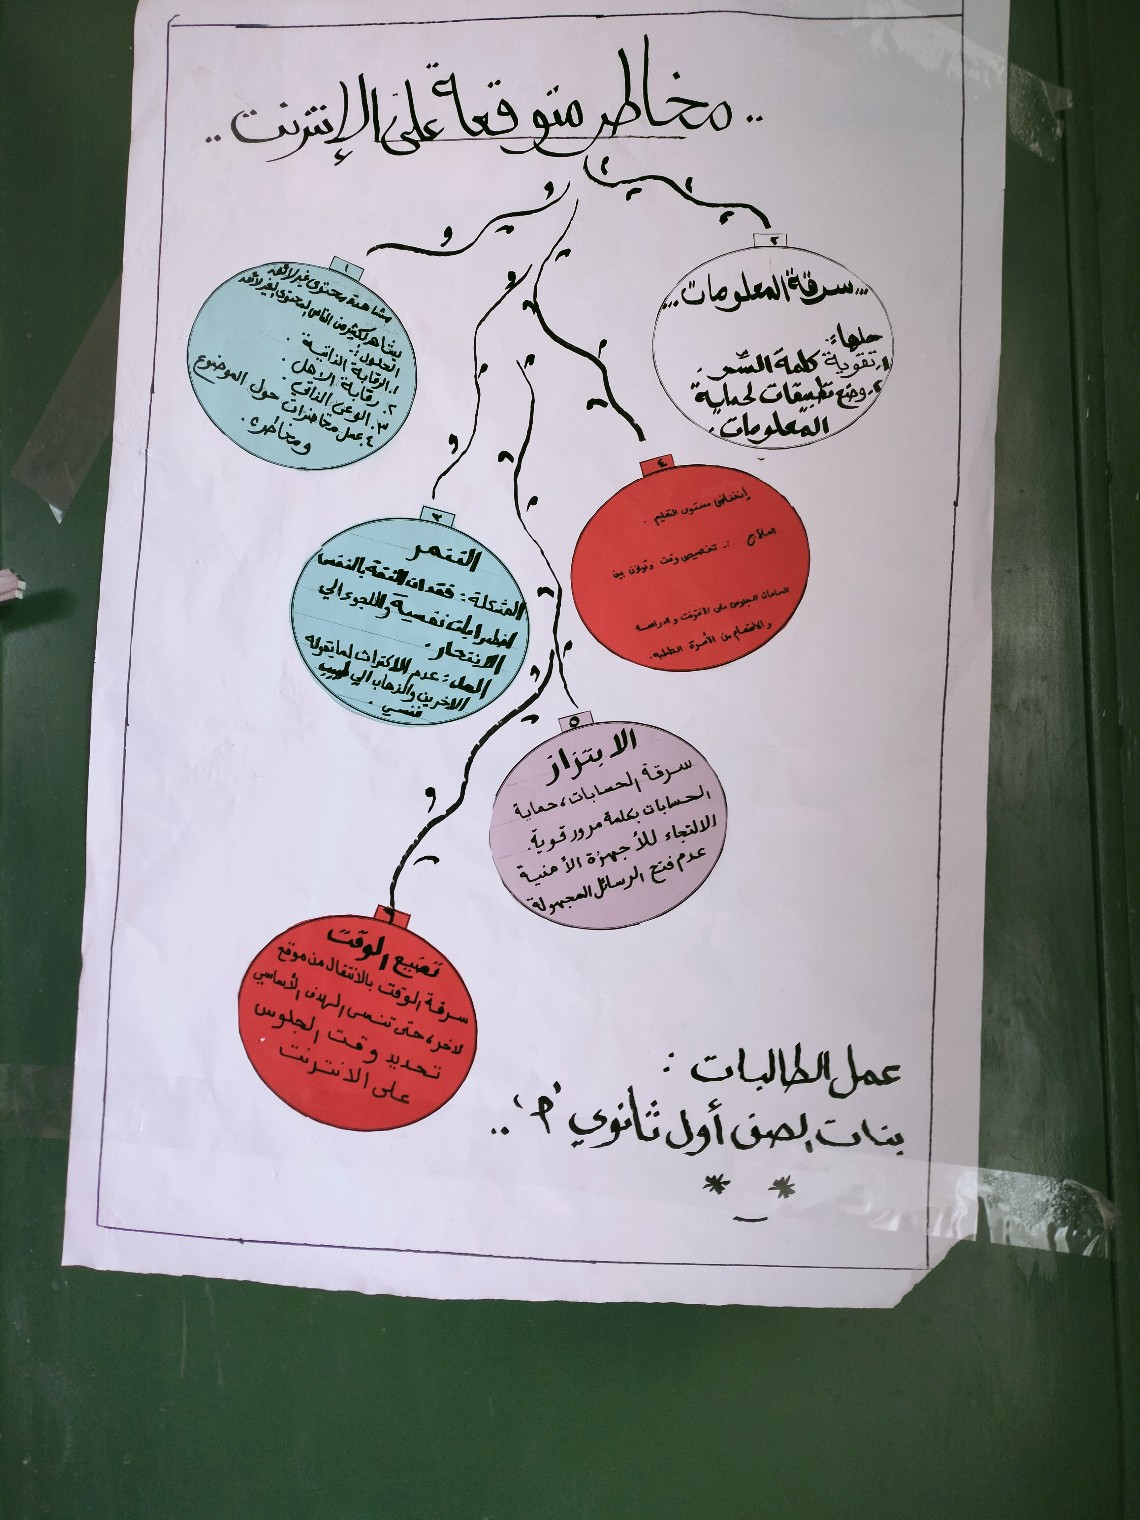 .. مخاطر متوقعة على الإنترنت ..
١
مشاهدة محتوى غير لائق
الحلول :
١. الرقابة الذاتية .
٢. رقابة الأهل .
٣. الوعي الذاتي .
٤. عمل محاضرات حول الموضوع
ومخاطره .
٢
... سرقة المعلومات ...
حلها :
١. تقوية كلمة السّر .
٢. وضع تطبيقات لحماية
المعلومات .
٣
التنمر
المشكلة : فقدان الثقة بالنفس
اضطرابات نفسية واللجوء الي
الانتحار .
الحل : عدم الاكتراث لما يقوله
الاخرين والذهاب الي طبيب
نفسي .
٤
إنخفاض مستوى التعليم .
العلاج :- تخصيص وقت وتوازن بين
الساعات الجلوس على الانترنت والدراسة
والاهتمام من الأسرة الطلبه .
٥
الابتزاز
سرقة الحسابات ، حماية
الحسابات بكلمة مرور قوية .
الالتجاء للأجهزة الأمنية
عدم فتح الرسائل المجهولة
٦
تضيع الوقت
سرقة الوقت بالانتقال من موقع
لاخر ، حتى تنسى الهدف الأساسي
تحديد وقت الجلوس
على الانترنت
عمل الطالبات :
بنات الصف أول ثانوي "م" ..